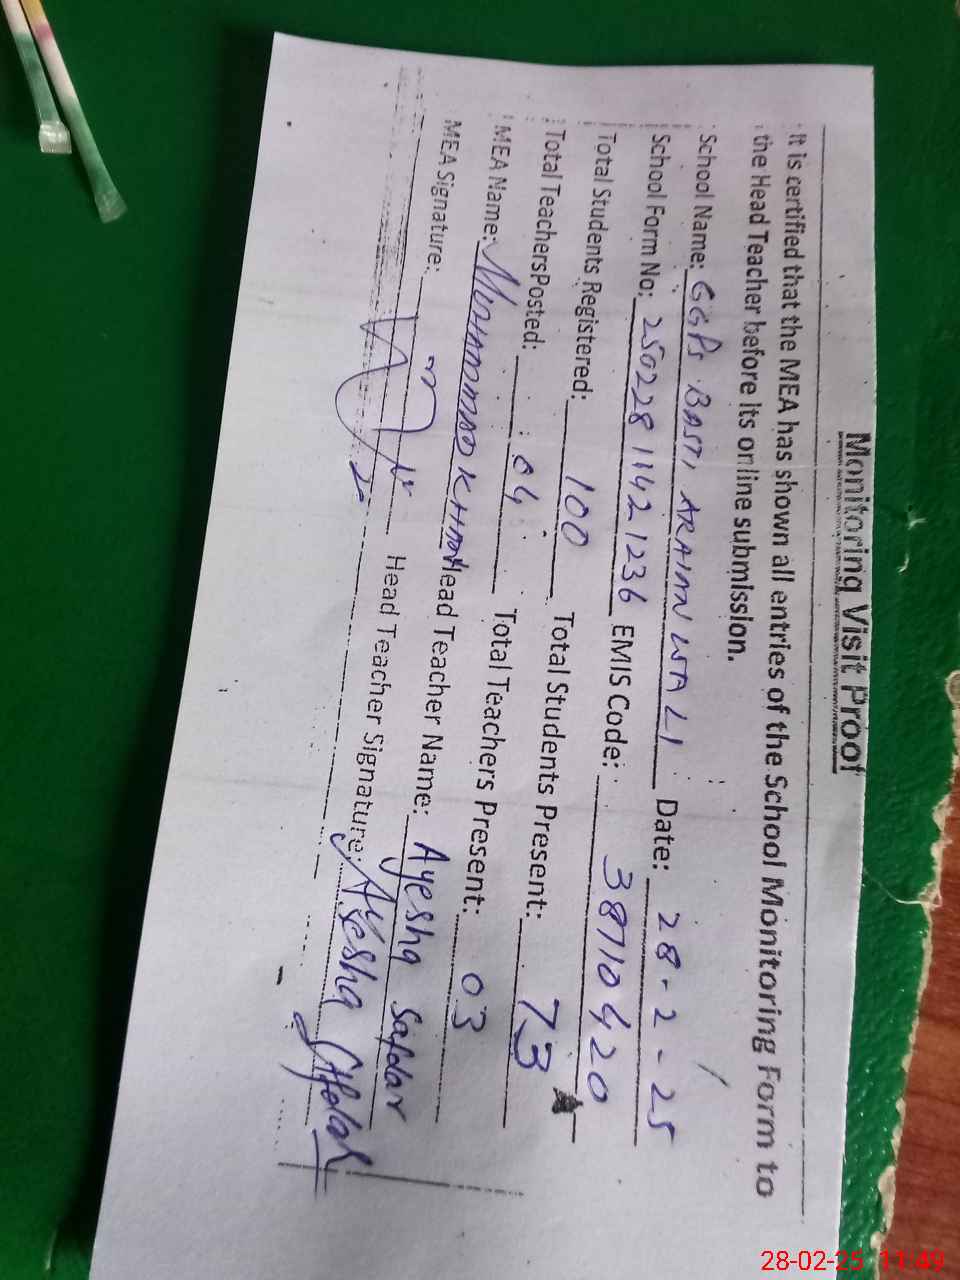 Monitoring Visit Proof
It is certified that the MEA has shown all entries of the School Monitoring Form to
the Head Teacher before its online submission.
School Name: GGPS BASTI ARAIAN WALI Date: 28-2-25
School Form No: 250228 1142 1236 EMIS Code: 38710420
Total Students Registered: 100 Total Students Present: 73
Total TeachersPosted: 04 Total Teachers Present: 03
MEA Name: MUHAMMAD KHAN Head Teacher Name: Ayesha Safdar
MEA Signature: Head Teacher Signature: Ayesha
28-02-25 11:49